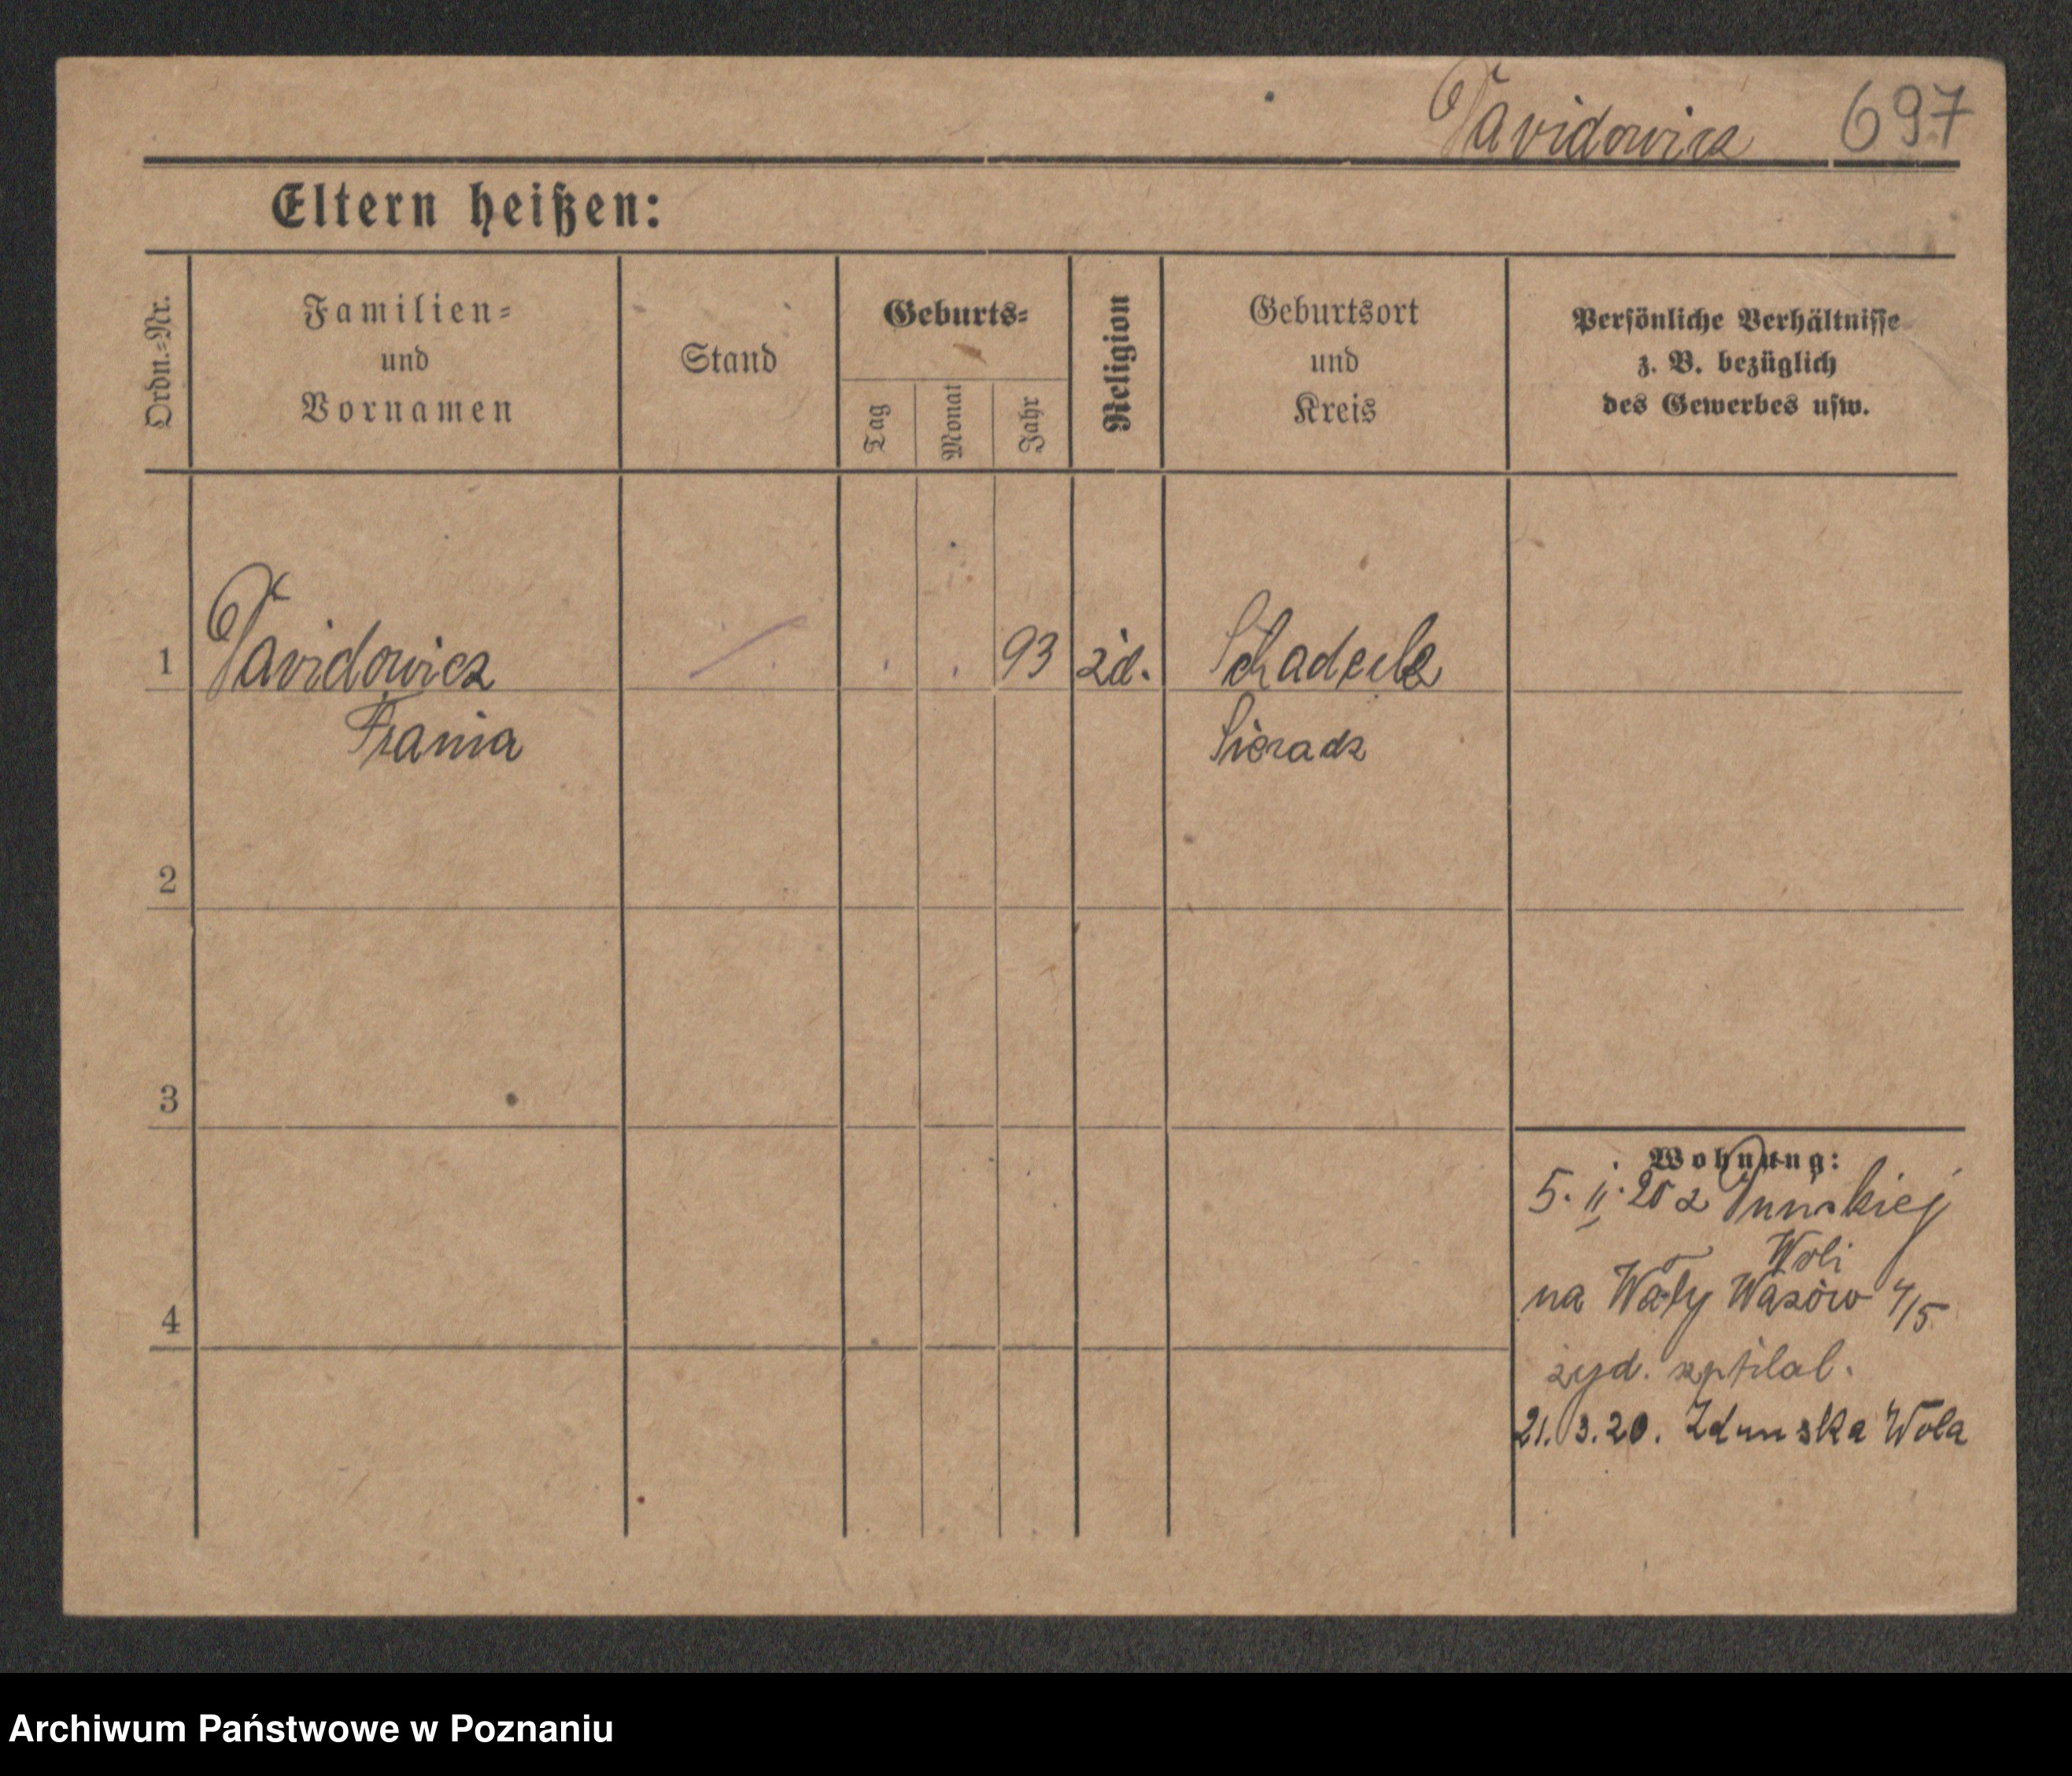 Davidowicz 697
Eltern heißen:
Ordn.-Nr.
Familien- und Vornamen
Stand
Geburts-
Tag
Monat
Jahr
Religion
Geburtsort und Kreis
Persönliche Verhältnisse z. B. bezüglich des Gewerbes usw.
1 Davidowicz 93 żd. Schadek
Frania Sieradz
2
3
4
Wohnung:
5. II. 20 z Dunskiej
Woli
na Wały Wazów 4/5
żyd. szpital.
21. 3. 20. Zdunska Wola
Archiwum Państwowe w Poznaniu